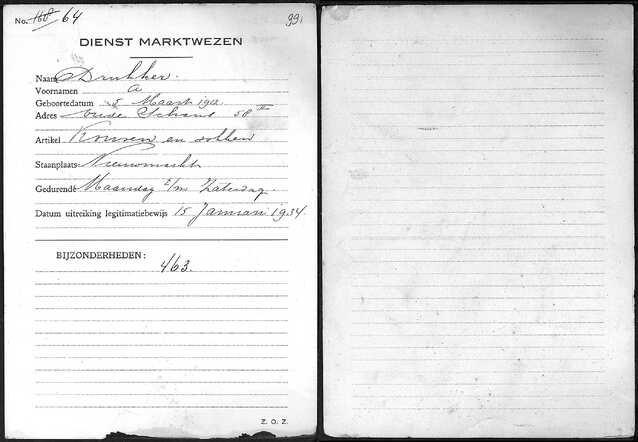 No. 168 64 99.
DIENST MARKTWEZEN
Naam Drukker.
Voornamen A
Geboortedatum 5 Maart 1912
Adres Oude Schans 58 II
Artikel Kousen en sokken
Staanplaats Nieuwmarkt
Gedurende Maandag t/m Zaterdag.
Datum uitreiking legitimatiebewijs 15 Januari 1934.
BIJZONDERHEDEN:
463.
Z. O. Z.